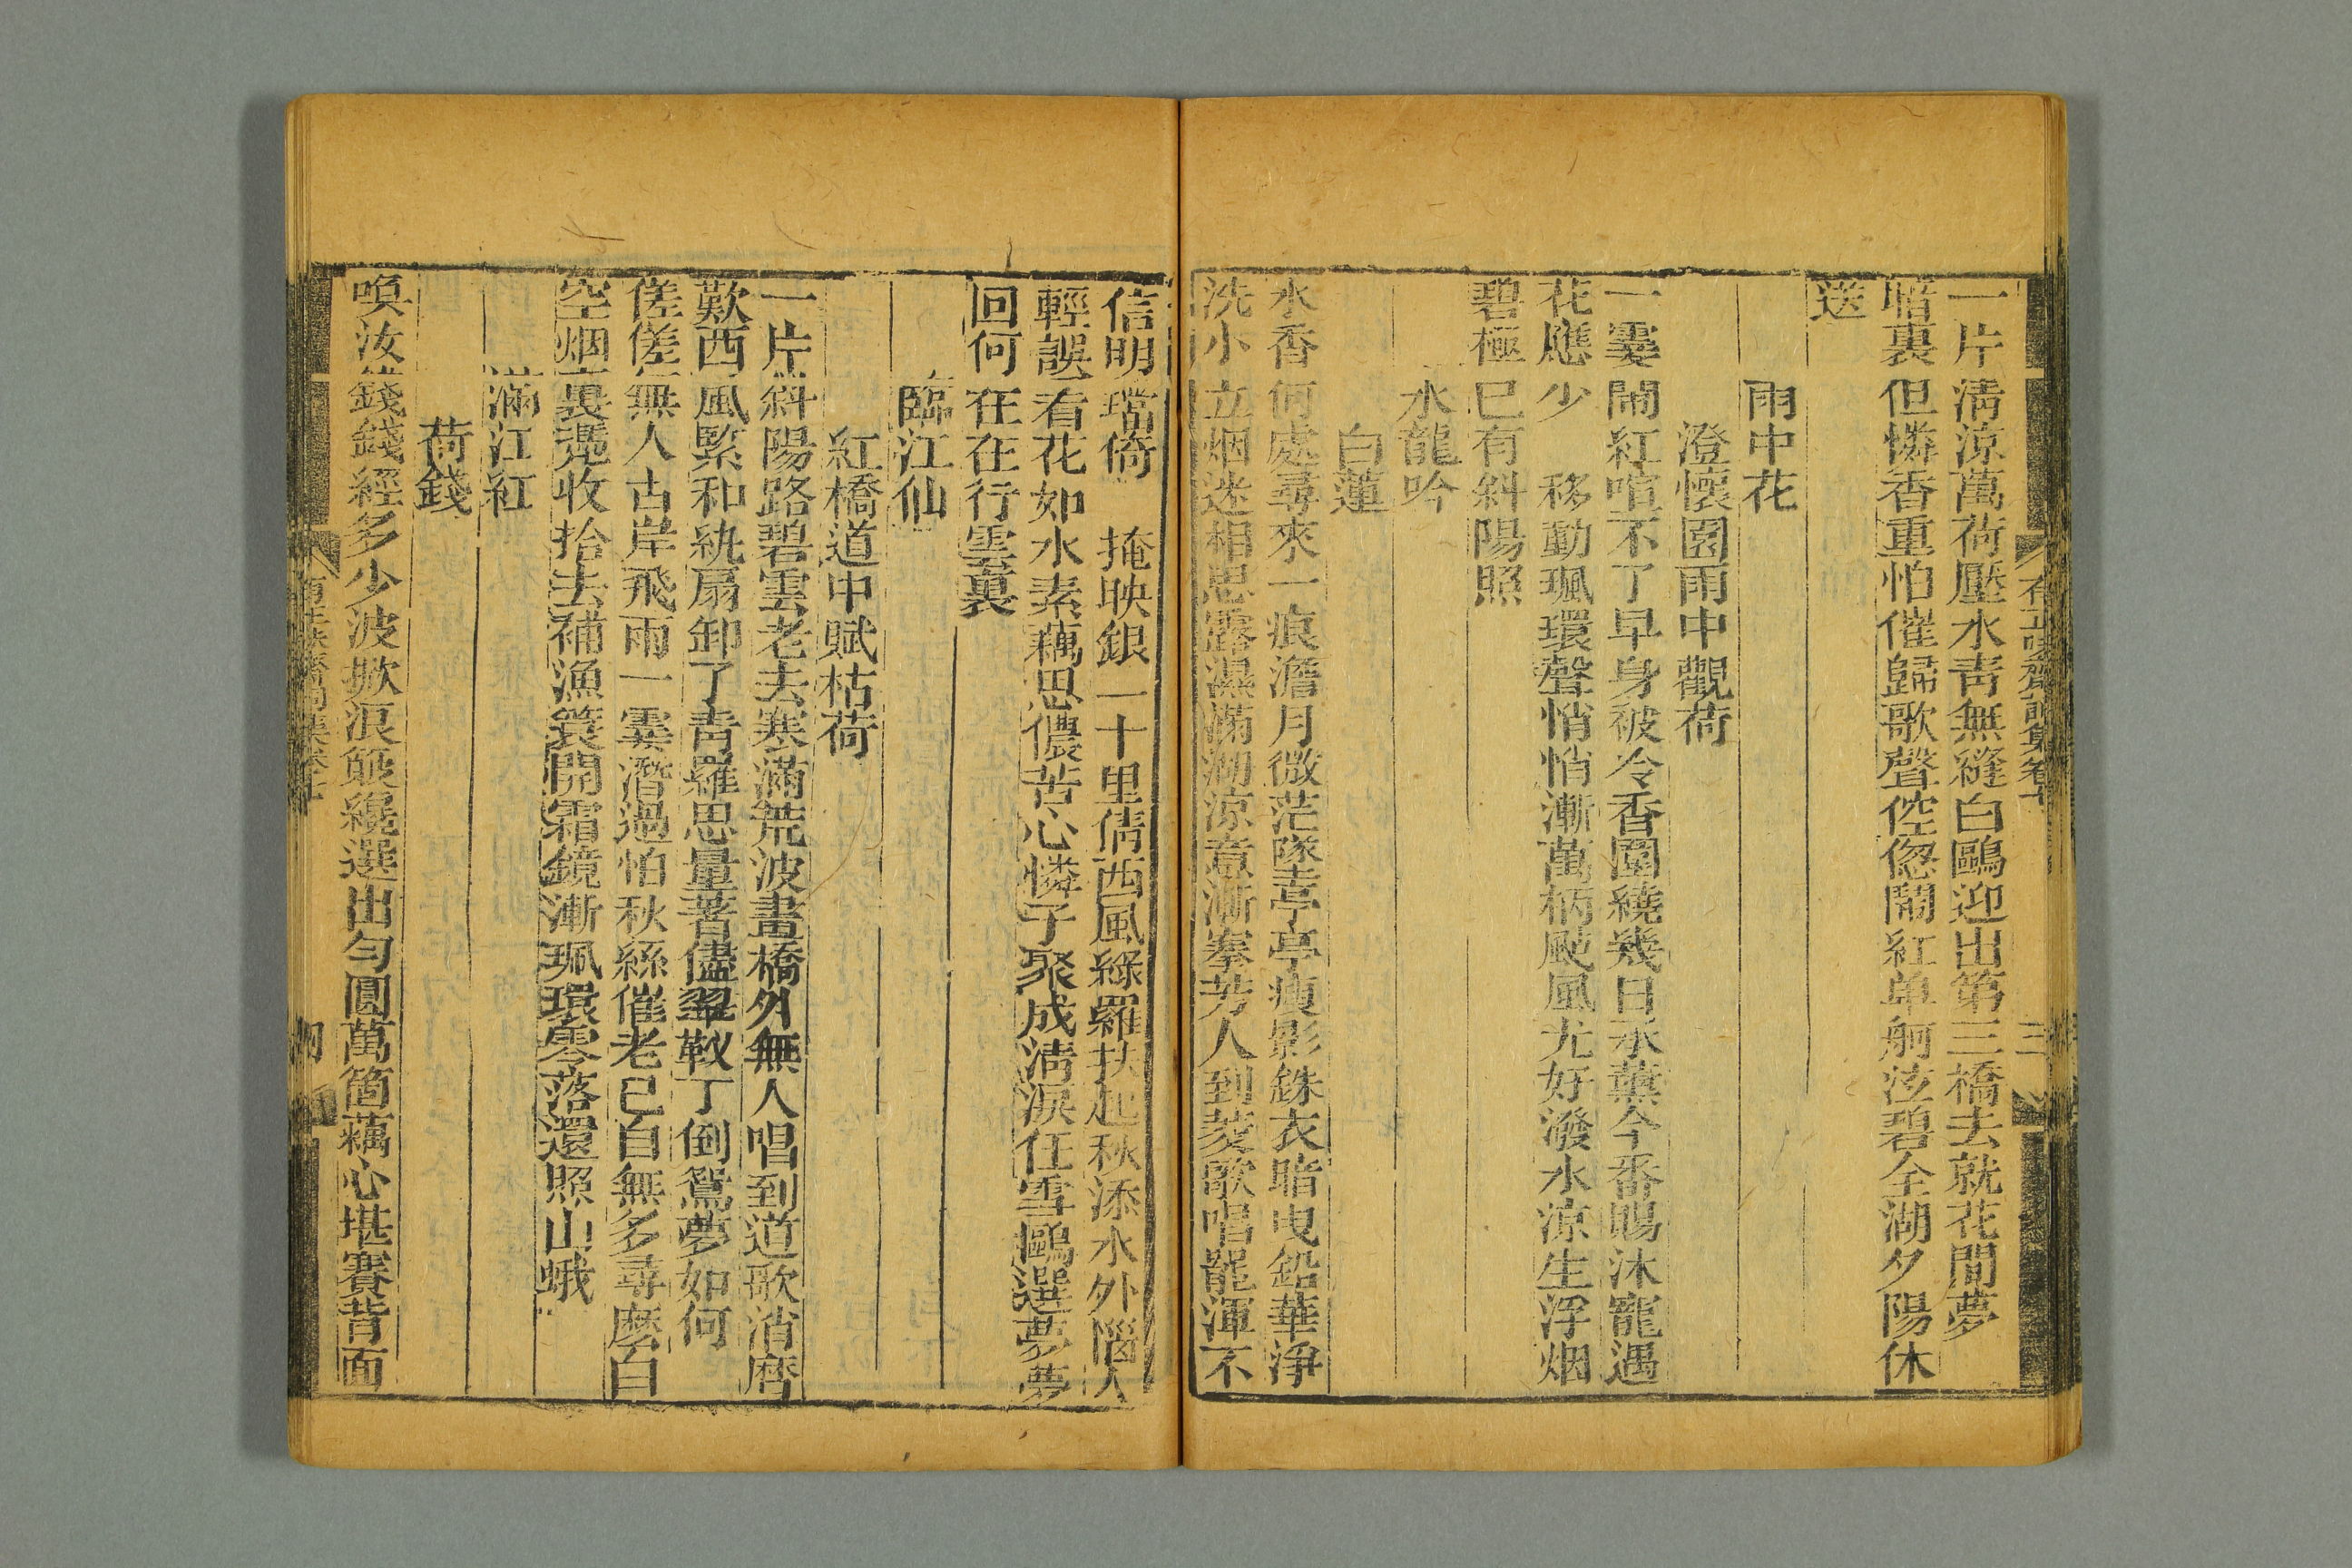 有正味齋詞集卷七
三
一片清涼萬荷壓水靑無縫白鷗迎出第三橋去就花間夢
暗裏但憐香重怕催歸歌聲倥傯鬧紅單舸泫碧全湖夕陽休
送
雨中花
澄懷園雨中觀荷
一霎鬧紅喧不了早身被冷香圍繞幾日承薰今番賜沐寵遇
花應少 移動珮環聲悄悄漸萬柄颭風尤好潑水涼生浮烟
碧極已有斜陽照
水龍吟
白蓮
水香何處尋來一痕澹月微茫墜亭亭瘦影銖衣暗曳鉛華淨
洗小立烟迷相思露濕滿湖涼意漸搴芳人到菱歌唱罷渾不
信明璫倚 掩映銀一十里倩西風綠羅扶起秋添水外惱人
輕誤看花如水素藕思儂苦心憐子聚成淸淚任雪鷗選夢夢
回何在在行雲裏
臨江仙
紅橋道中賦枯荷
一片斜陽路碧雲老去寒滿荒波畫橋外無人唱到道歌消磨
歎西風緊和紈扇卸了靑羅思量著儘翠㪇丁倒鴛夢如何
傞傞無人古岸飛雨一霎潛過怕秋絲催老已自無多尋麽自
空烟裏遲收拾去補漁簑開霜鏡漸珮環零落還照山蛾
滿江紅
荷錢
喚汝錢錢經多少波掀浪簸纔選出勻圓萬箇藕心堪賽背面
有正味齋詞集卷七